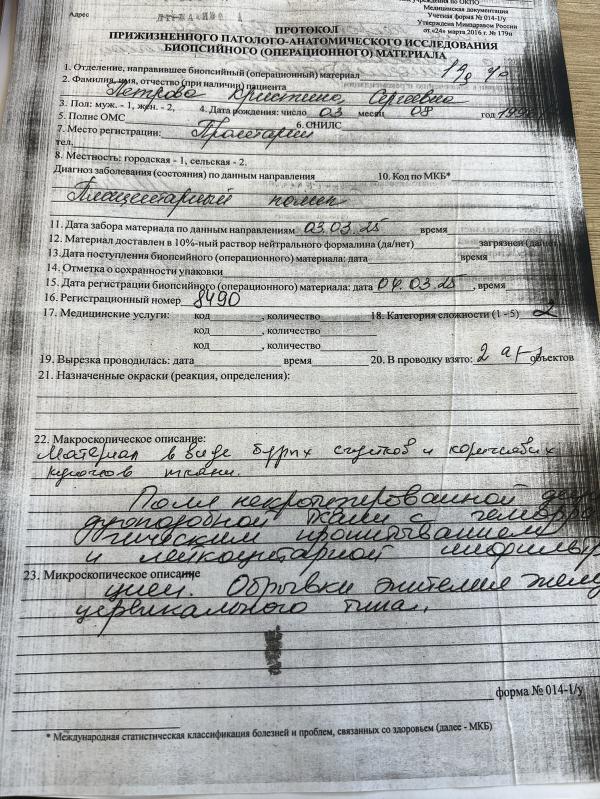 учреждения по ОКПО
Медицинская документация
Учетная форма № 014-1/у
Утверждена Минздравом России
от «24» марта 2016 г. № 179н
Адрес
ПРОТОКОЛ
ПРИЖИЗНЕННОГО ПАТОЛОГО-АНАТОМИЧЕСКОГО ИССЛЕДОВАНИЯ
БИОПСИЙНОГО (ОПЕРАЦИОННОГО) МАТЕРИАЛА
1. Отделение, направившее биопсийный (операционный) материал
2. Фамилия, имя, отчество (при наличии) пациента
Петрова Кристина Сергеевна
3. Пол: муж. - 1, жен. - 2, 4. Дата рождения: число 03 месяц 08 год
5. Полис ОМС 6. СНИЛС
7. Место регистрации: Пролетарии
тел.
8. Местность: городская - 1, сельская - 2.
Диагноз заболевания (состояния) по данным направления 10. Код по МКБ*
Плацентарный полип
11. Дата забора материала по данным направления 03.03.25 время
12. Материал доставлен в 10%-ный раствор нейтрального формалина (да/нет) загрязнен (да/нет)
13.Дата поступления биопсийного (операционного) материала: дата время
14. Отметка о сохранности упаковки
15. Дата регистрации биопсийного (операционного) материала: дата 04.03.25, время
16. Регистрационный номер 8490
17. Медицинские услуги: код , количество 18. Категория сложности (1 - 5) 2
код , количество
код , количество
19. Вырезка проводилась: дата время 20. В проводку взято: 2 объектов
21. Назначенные окраски (реакция, определения):
22. Макроскопическое описание:
Материал в виде бурых сгустков и коричневых
кусочков ткани.
Поля некротизированной
дуоподобной ткани с
гическим пропитыванием
и лейкоцитарной
23. Микроскопическое описание
цией. Обрывки эпителия
цервикального типа.
форма № 014-1/у
* Международная статистическая классификация болезней и проблем, связанных со здоровьем (далее - МКБ)